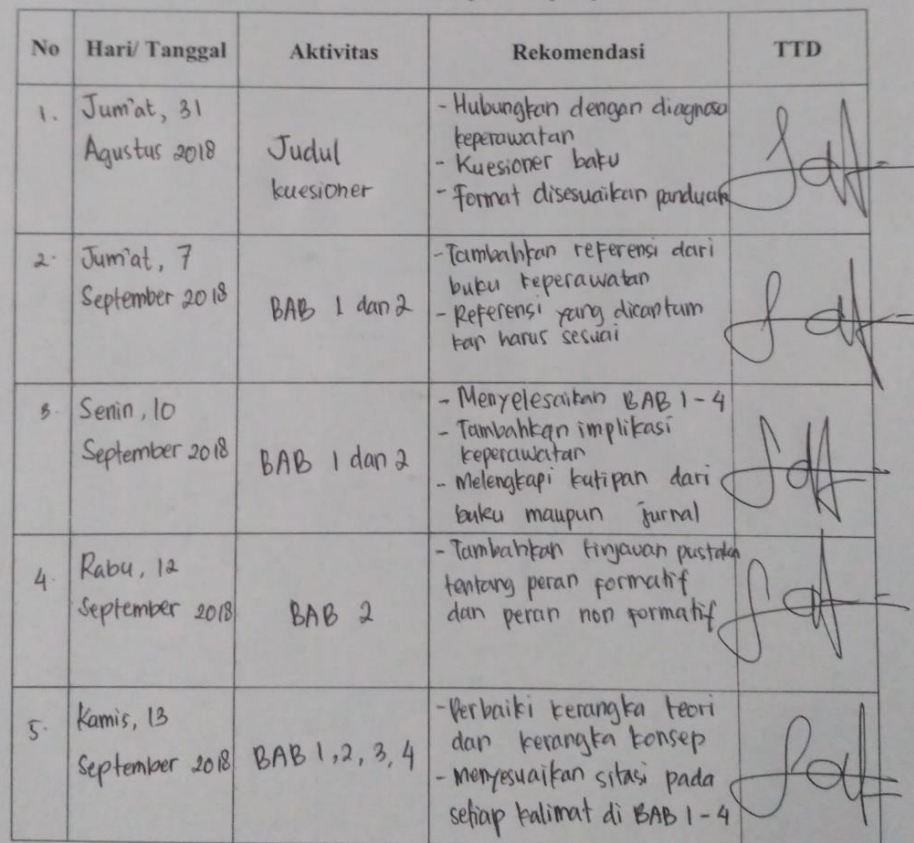 No Hari/ Tanggal Aktivitas Rekomendasi TTD
1. Jum'at, 31
Agustus 2018
Judul
kuesioner
- Hubungkan dengan diagnosa
keperawatan
- Kuesioner baku
- Format disesuaikan panduan
2. Jum'at, 7
September 2018
BAB 1 dan 2
- Tambahkan referensi dari
buku keperawatan
- Referensi yang dicantum
kan harus sesuai
3. Senin, 10
September 2018
BAB 1 dan 2
- Menyelesaikan BAB 1 - 4
- Tambahkan implikasi
keperawatan
- Melengkapi kutipan dari
buku maupun jurnal
4. Rabu, 12
September 2018
BAB 2
- Tambahkan tinjauan pustaka
tentang peran formatif
dan peran non formatif
5. Kamis, 13
September 2018
BAB 1, 2, 3, 4
- Perbaiki kerangka teori
dan kerangka konsep
- Menyesuaikan sitasi pada
setiap kalimat di BAB 1 - 4